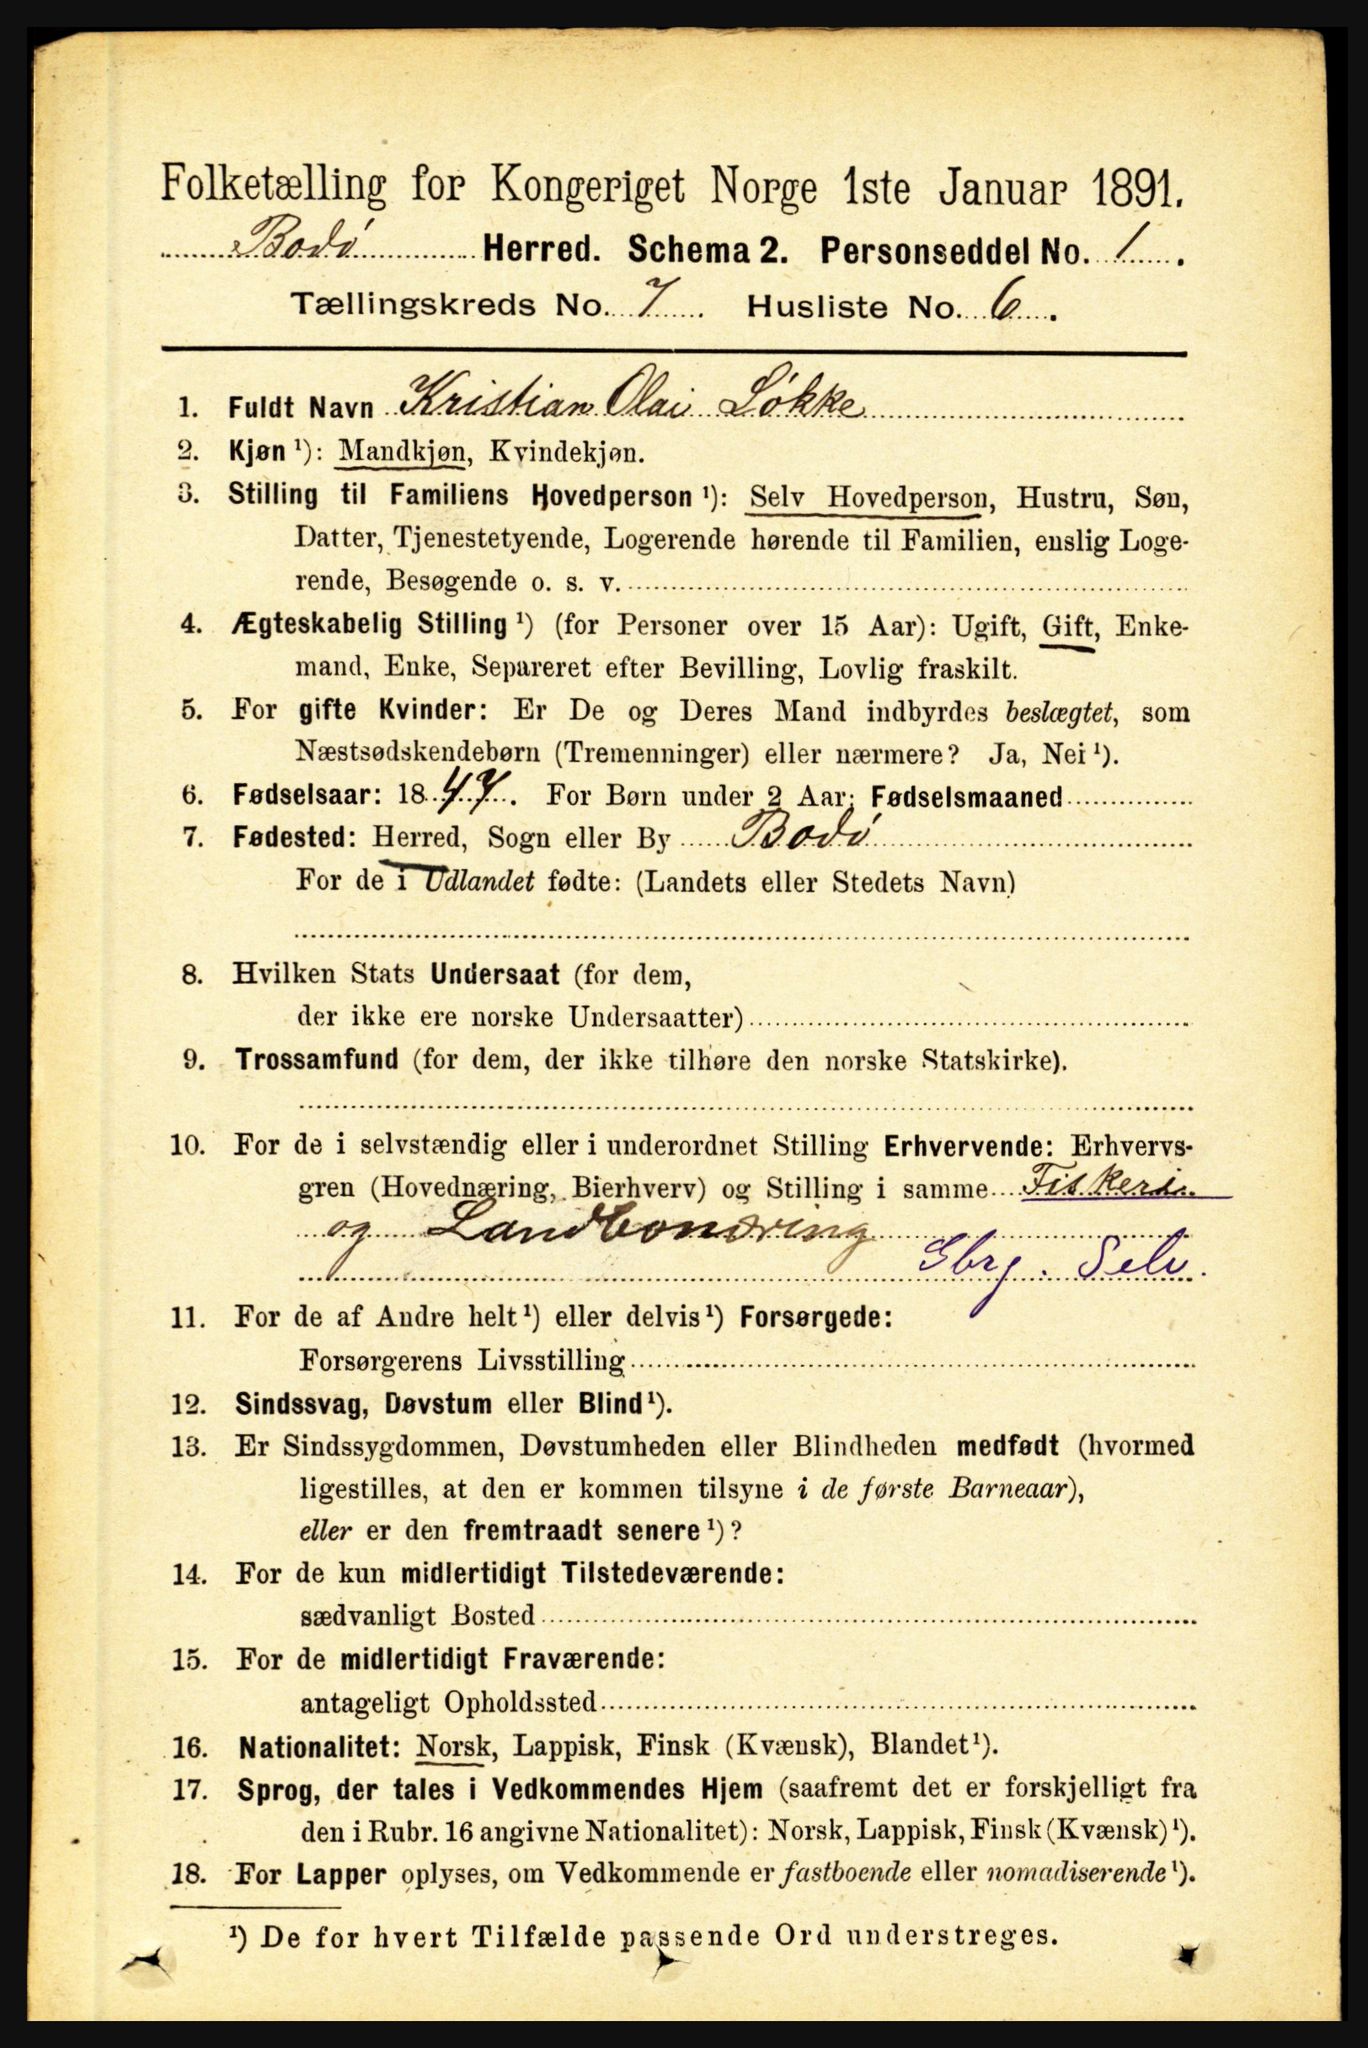 Folketælling for Kongeriget Norge 1ste Januar 1891.
Bodø Herred. Schema 2. Personseddel No. 1.
Tællingskreds No. 7 Husliste No. 6.
1. Fuldt Navn Kristian Olai Løkke
2. Kjøn ¹): Mandkjøn, Kvindekjøn.
3. Stilling til Familiens Hovedperson ¹): Selv Hovedperson, Hustru, Søn,
Datter, Tjenestetyende, Logerende hørende til Familien, enslig Loge-
rende, Besøgende o. s. v.
4. Ægteskabelig Stilling ¹) (for Personer over 15 Aar): Ugift, Gift, Enke-
mand, Enke, Separeret efter Bevilling, Lovlig fraskilt.
5. For gifte Kvinder: Er De og Deres Mand indbyrdes beslægtet, som
Næstsødskendebørn (Tremenninger) eller nærmere? Ja, Nei ¹).
6. Fødselsaar: 1847. For Børn under 2 Aar: Fødselsmaaned
7. Fødested: Herred, Sogn eller By Bodø
For de i Udlandet fødte: (Landets eller Stedets Navn)
8. Hvilken Stats Undersaat (for dem,
der ikke ere norske Undersaatter)
9. Trossamfund (for dem, der ikke tilhøre den norske Statskirke).
10. For de i selvstændig eller i underordnet Stilling Erhvervende: Erhvervs-
gren (Hovednæring, Bierhverv) og Stilling i samme Fiskeri
og Landbonæring
Gbrg. Selv.
11. For de af Andre helt ¹) eller delvis ¹) Forsørgede:
Forsørgerens Livsstilling
12. Sindssvag, Døvstum eller Blind ¹).
13. Er Sindssygdommen, Døvstumheden eller Blindheden medfødt (hvormed
ligestilles, at den er kommen tilsyne i de første Barneaar),
eller er den fremtraadt senere ¹)?
14. For de kun midlertidigt Tilstedeværende:
sædvanligt Bosted
15. For de midlertidigt Fraværende:
antageligt Opholdssted
16. Nationalitet: Norsk, Lappisk, Finsk (Kvænsk), Blandet ¹).
17. Sprog, der tales i Vedkommendes Hjem (saafremt det er forskjelligt fra
den i Rubr. 16 angivne Nationalitet): Norsk, Lappisk, Finsk (Kvænsk) ¹).
18. For Lapper oplyses, om Vedkommende er fastboende eller nomadiserende ¹).
¹) De for hvert Tilfælde passende Ord understreges.